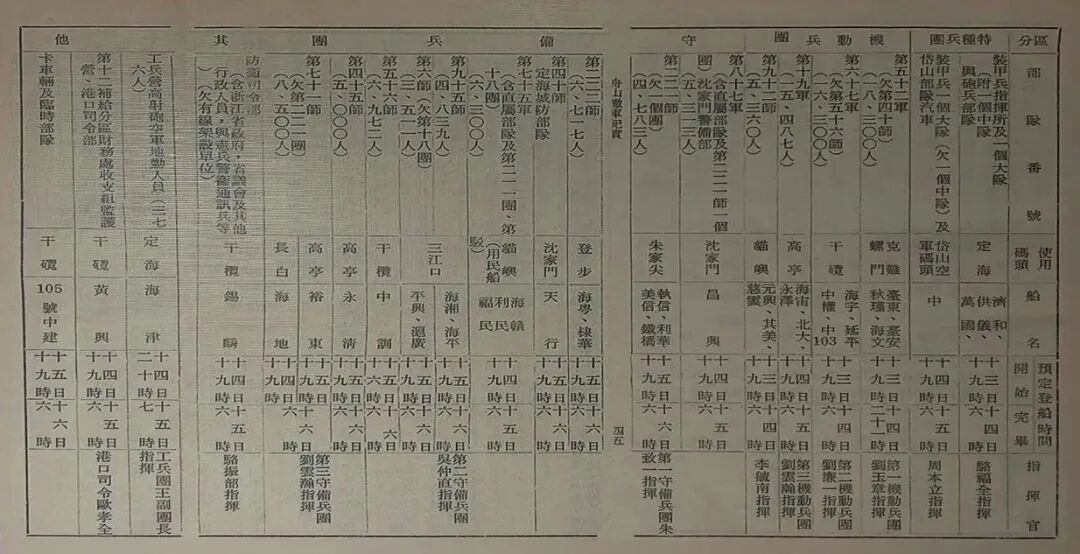 區分
部隊番號
使用碼頭
船名
預定登船時間
開始
完畢
指揮官
特種兵團
裝甲兵指揮所及一個大隊
(附一個中隊)
與砲兵隊
定海
濟和、
供儀、
萬國、
十三日
十九時
十四日
六時
駱福全指揮
裝甲兵一個大隊(欠一個中隊)及
岱山部隊汽車
岱山空
軍碼頭
中
十四日
十九時
十五日
六時
周本立指揮
機動兵團
第五十二軍
(欠第四十師)
(一八、三〇〇人)
克難
螺門
臺東、臺安
秋瑾、海文
十三日
九時
十四日
二十一時
第一機動兵團
劉玉章指揮
第六十七軍
(欠第五十六師)
(一六、三〇〇人)
干𥕢
海宇、延平
中權、中103
十三日
十九時
十四日
六時
第二機動兵團
劉廉一指揮
第十九軍
(一五、四八七人)
高亭
海宙、北大、
永澤
第三機動兵團
劉雲瀚指揮
第九十二師
(五、三六〇人)
貓嶼
元興、其美、
慈雲
十三日
十九時
十四日
六時
李毓南指揮
守備兵團
第八十七軍
(含直屬部隊及第二二一師一個
團、沈家門警備部
(五、三一三人)
沈家門
昌興
十四日
十九時
十五日
六時
(欠一個團)
(四、七八三人)
朱家尖
執信、利華
美信、鐵橋
十四日
十九時
十六日
六時
第一守備兵團朱
致一指揮
舟山撤軍紀實
四五
第二二二師
(六、七一七人)
登步
海粵、棣華
十五日
十九時
十六日
六時
第四十師
定海城防部隊
沈家門
天行
十五日
十九時
十六日
六時
第七十五軍
(含直屬部隊及第二二一團、第
十八團)
(六、三〇〇人)
貓嶼
(用民船
駁)
海贛
利民
福民
十四日
十九時
十五日
六時
第九十五師
(四、八三九人)
三江口
海湘、海平
十五日
十九時
十六日
六時
第二守備兵團
吳仲直指揮
第六師(欠第十八團)
(三、五二一人)
平興、滬廣
第五十六師
(六、九七二人)
干𣚴
中訓
第四十五師
(五、〇〇〇人)
高亭
永清
第七十一師
(欠第二二一團)
(八、五〇〇人)
高亭
裕東
長白
海地
十五日
十九時
十六日
六時
第三守備兵團
劉雲瀚指揮
其
防衛司令部
(含浙江省政府,省議會及其他
行政人員,與憲兵警衛通訊兵等
(欠有線架設單位)
錫麟
十四日
十九時
十五日
六時
駱振韶指揮
他
工兵營高射砲空軍地勤人員(三七
六人)
定海
海津
十五日
二十時
十六日
七時
工兵團王副團長
指揮
第十二補給分區財務處收支組監護
營、港口司令部
干𥕢
黃興
十四日
十九時
十五日
六時
港口司令歐孝全
卡車輛及臨時部隊
干𥕢
105號中建
十五日
十九時
十六日
六時